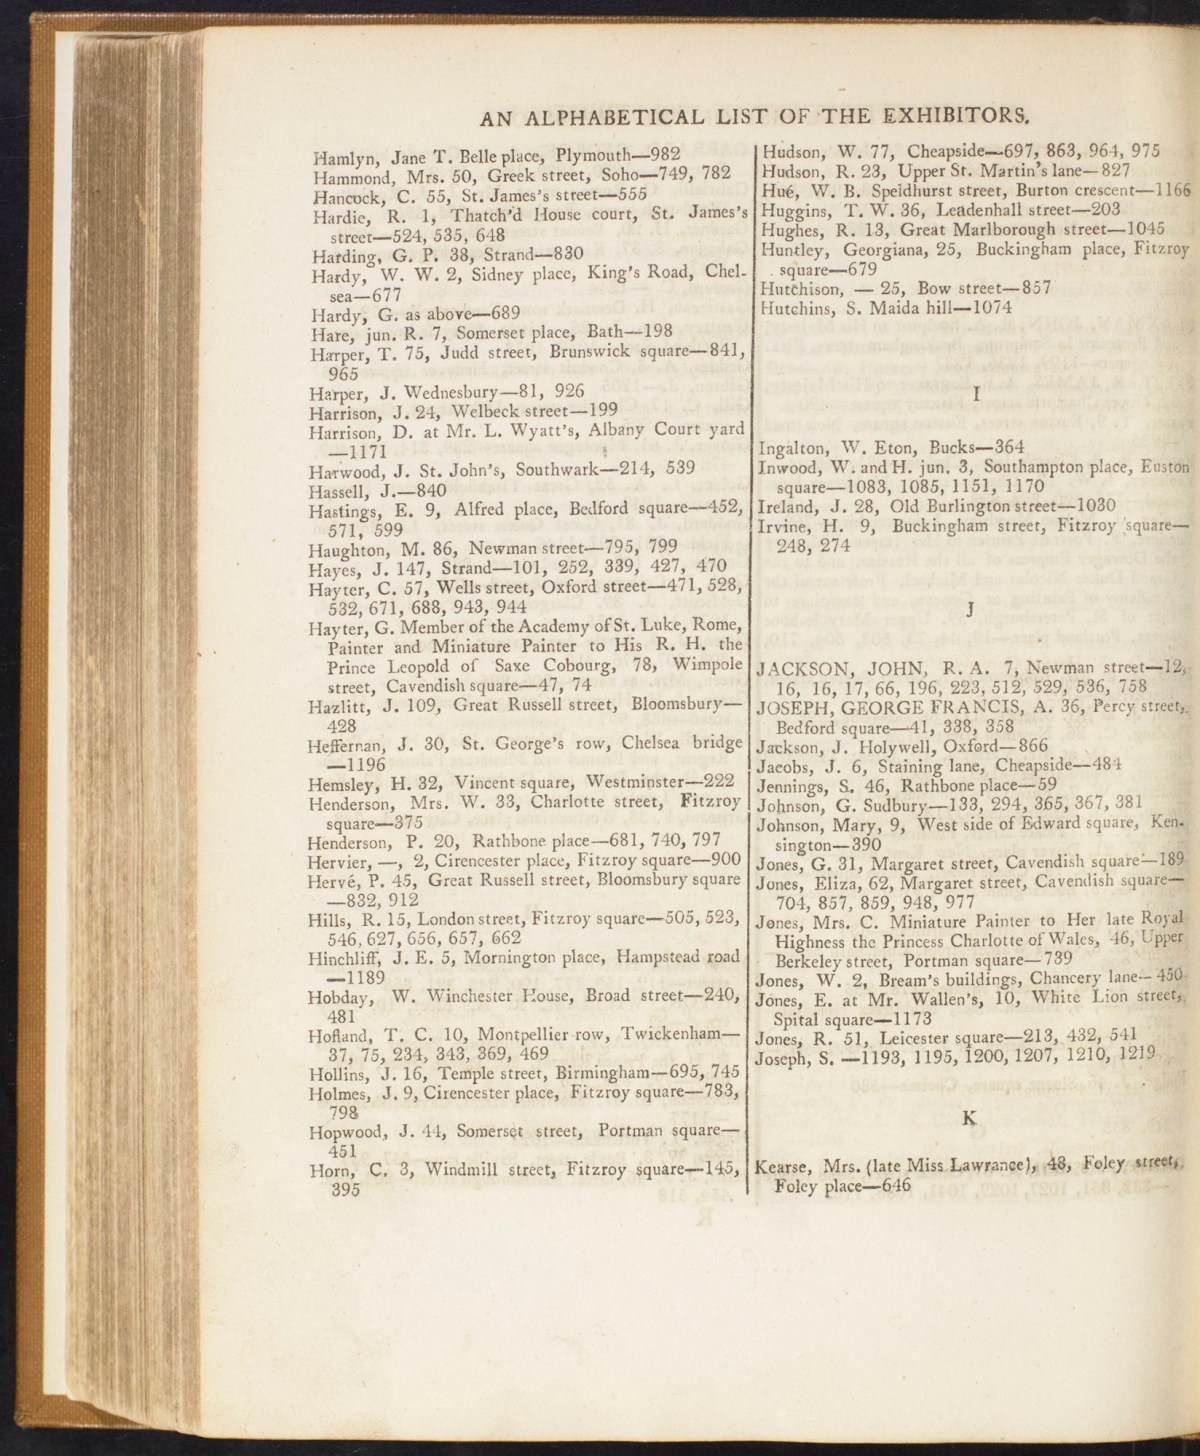 AN ALPHABETICAL LIST OF THE EXHIBITORS.
Hamlyn, Jane T. Belle place, Plymouth—982
Hammond, Mrs. 50, Greek street, Soho—749, 782
Hancock, C. 55, St. James's street—555
Hardie, R. 1, Thatch'd House court, St. James's
street—524, 535, 648
Harding, G. P. 38, Strand—830
Hardy, W. W. 2, Sidney place, King's Road, Chel-
sea—677
Hardy, G. as above—689
Hare, jun. R. 7, Somerset place, Bath—198
Harper, T. 75, Judd street, Brunswick square—841,
965
Harper, J. Wednesbury—81, 926
Harrison, J. 24, Welbeck street—199
Harrison, D. at Mr. L. Wyatt's, Albany Court yard
—1171
Harwood, J. St. John's, Southwark—214, 539
Hassell, J.—840
Hastings, E. 9, Alfred place, Bedford square—452,
571, 599
Haughton, M. 86, Newman street—795, 799
Hayes, J. 147, Strand—101, 252, 339, 427, 470
Hayter, C. 57, Wells street, Oxford street—471, 528,
532, 671, 688, 943, 944
Hayter, G. Member of the Academy of St. Luke, Rome,
Painter and Miniature Painter to His R. H. the
Prince Leopold of Saxe Cobourg, 78, Wimpole
street, Cavendish square—47, 74
Hazlitt, J. 109, Great Russell street, Bloomsbury—
428
Heffernan, J. 30, St. George's row, Chelsea bridge
—1196
Hemsley, H. 32, Vincent square, Westminster—222
Henderson, Mrs. W. 33, Charlotte street, Fitzroy
square—375
Henderson, P. 20, Rathbone place—681, 740, 797
Hervier, —, 2, Cirencester place, Fitzroy square—900
Hervé, P. 45, Great Russell street, Bloomsbury square
—832, 912
Hills, R. 15, London street, Fitzroy square—505, 523,
546, 627, 656, 657, 662
Hinchliff, J. E. 5, Mornington place, Hampstead road
—1189
Hobday, W. Winchester House, Broad street—240,
481
Hofland, T. C. 10, Montpellier row, Twickenham—
37, 75, 234, 343, 369, 469
Hollins, J. 16, Temple street, Birmingham—695, 745
Holmes, J. 9, Cirencester place, Fitzroy square—783,
798
Hopwood, J. 44, Somerset street, Portman square—
451
Horn, C. 3, Windmill street, Fitzroy square—145,
395
Hudson, W. 77, Cheapside—697, 863, 964, 975
Hudson, R. 23, Upper St. Martin's lane—827
Hué, W. B. Speldhurst street, Burton crescent—1166
Huggins, T. W. 36, Leadenhall street—203
Hughes, R. 13, Great Marlborough street—1045
Huntley, Georgiana, 25, Buckingham place, Fitzroy
square—679
Hutchison, — 25, Bow street—857
Hutchins, S. Maida hill—1074
I
Ingalton, W. Eton, Bucks—364
Inwood, W. and H. jun. 3, Southampton place, Euston
square—1083, 1085, 1151, 1170
Ireland, J. 28, Old Burlington street—1030
Irvine, H. 9, Buckingham street, Fitzroy square—
248, 274
J
JACKSON, JOHN, R. A. 7, Newman street—12,
16, 16, 17, 66, 196, 223, 512, 529, 536, 758
JOSEPH, GEORGE FRANCIS, A. 36, Percy street,
Bedford square—41, 338, 358
Jackson, J. Holywell, Oxford—866
Jacobs, J. 6, Staining lane, Cheapside—484
Jennings, S. 46, Rathbone place—59
Johnson, G. Sudbury—133, 294, 365, 367, 381
Johnson, Mary, 9, West side of Edward square, Ken-
sington—390
Jones, G. 31, Margaret street, Cavendish square—189
Jones, Eliza, 62, Margaret street, Cavendish square—
704, 857, 859, 948, 977
Jones, Mrs. C. Miniature Painter to Her late Royal
Highness the Princess Charlotte of Wales, 46, Upper
Berkeley street, Portman square—739
Jones, W. 2, Bream's buildings, Chancery lane—450
Jones, E. at Mr. Wallen's, 10, White Lion street,
Spital square—1173
Jones, R. 51, Leicester square—213, 432, 541
Joseph, S. —1193, 1195, 1200, 1207, 1210, 1219
K
Kearse, Mrs. (late Miss Lawrance), 48, Foley street,
Foley place—646